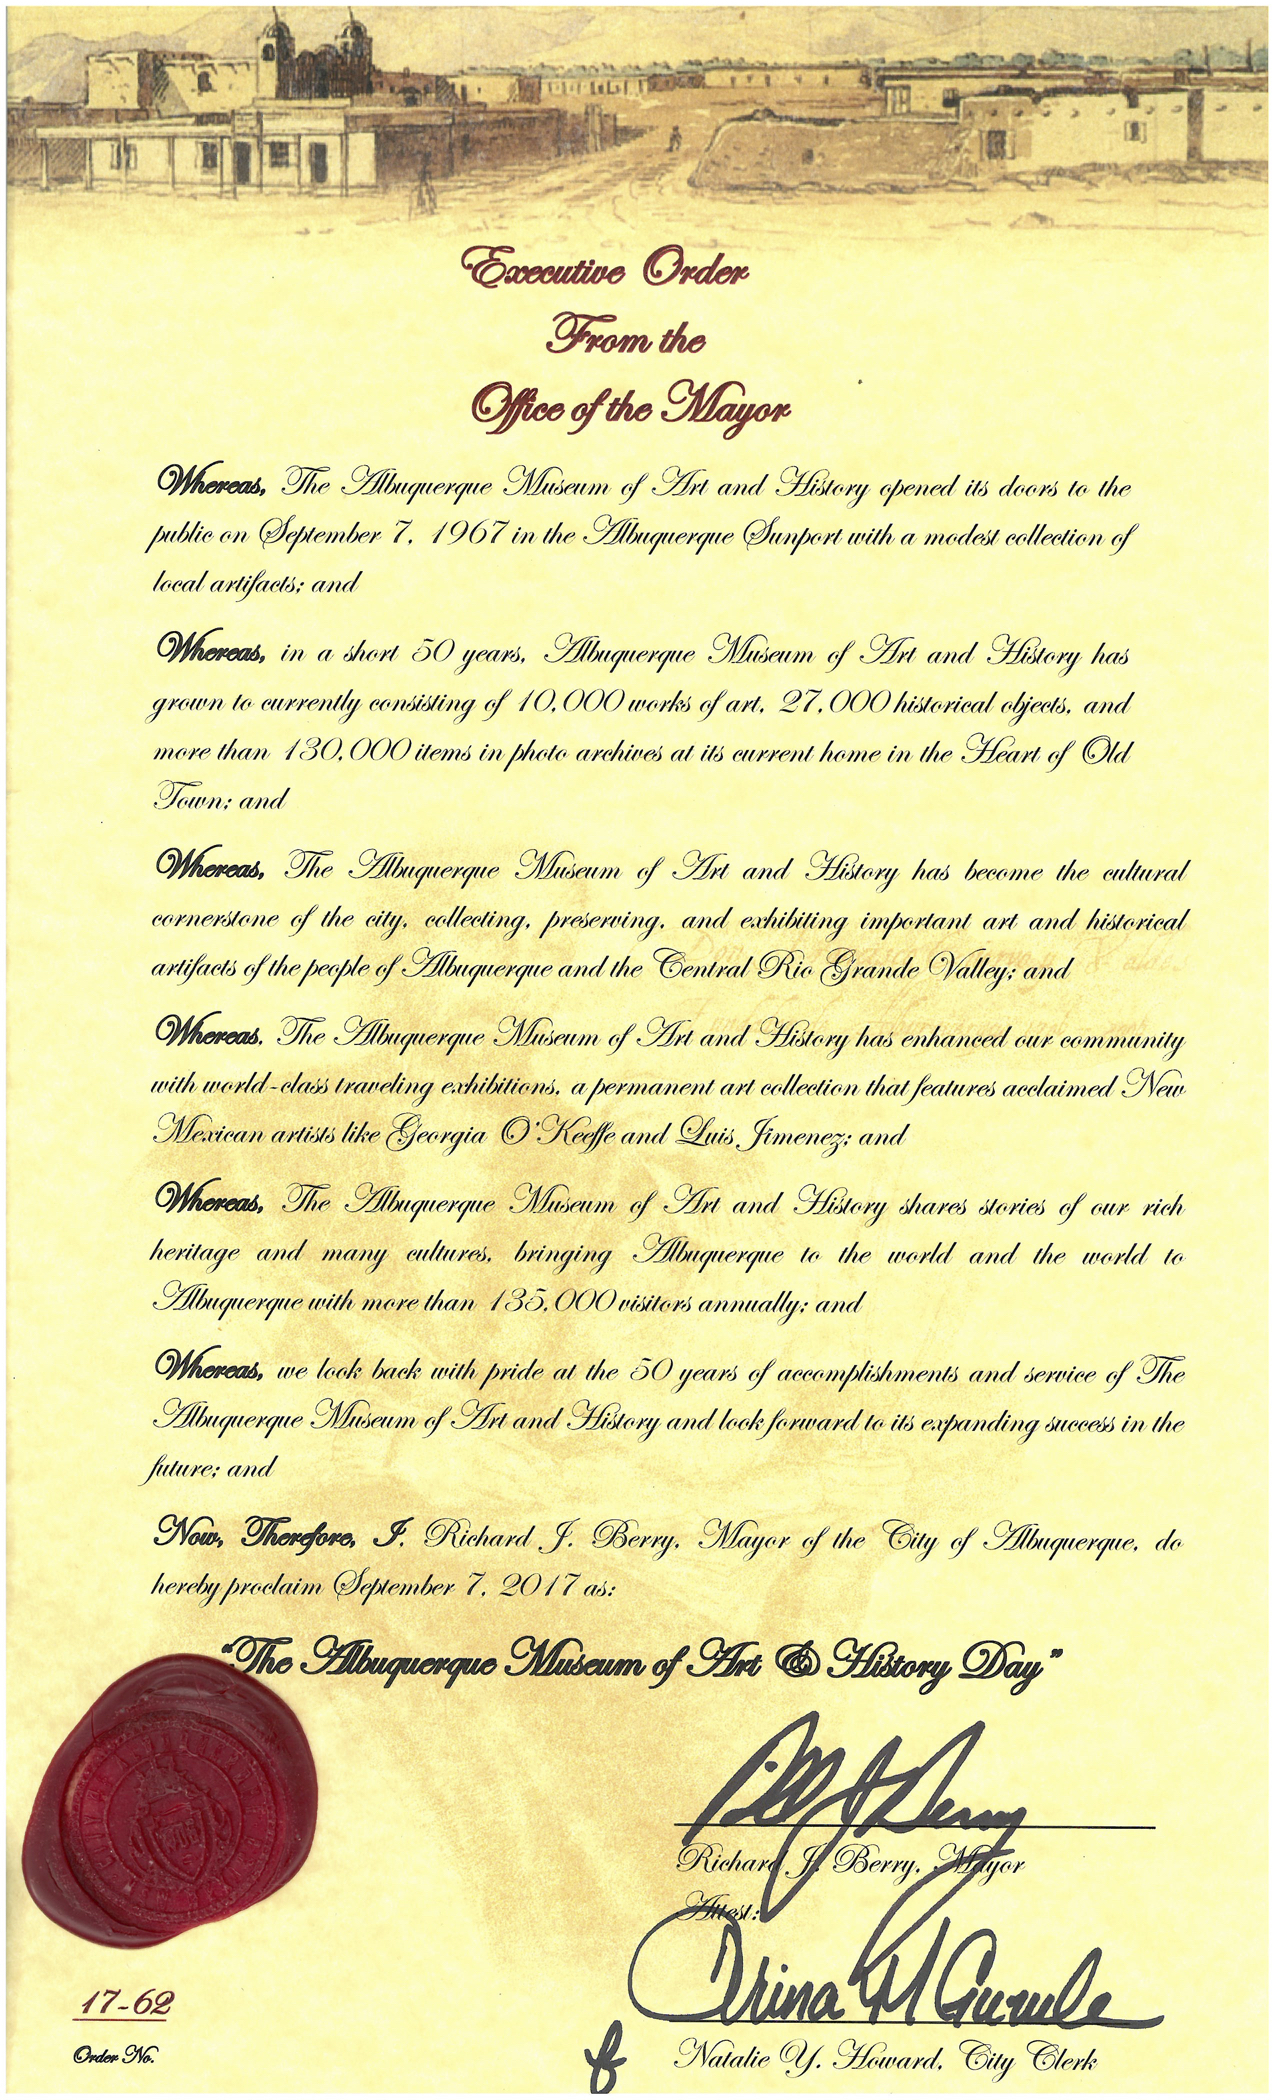 Executive Order
From the
Office of the Mayor
Whereas, The Albuquerque Museum of Art and History opened its doors to the
public on September 7, 1967 in the Albuquerque Sunport with a modest collection of
local artifacts; and
Whereas, in a short 50 years, Albuquerque Museum of Art and History has
grown to currently consisting of 10,000 works of art, 27,000 historical objects, and
more than 130,000 items in photo archives at its current home in the Heart of Old
Town; and
Whereas, The Albuquerque Museum of Art and History has become the cultural
cornerstone of the city, collecting, preserving, and exhibiting important art and historical
artifacts of the people of Albuquerque and the Central Rio Grande Valley; and
Whereas, The Albuquerque Museum of Art and History has enhanced our community
with world-class traveling exhibitions, a permanent art collection that features acclaimed New
Mexican artists like Georgia O'Keeffe and Luis Jimenez; and
Whereas, The Albuquerque Museum of Art and History shares stories of our rich
heritage and many cultures, bringing Albuquerque to the world and the world to
Albuquerque with more than 135,000 visitors annually; and
Whereas, we look back with pride at the 50 years of accomplishments and service of The
Albuquerque Museum of Art and History and look forward to its expanding success in the
future; and
Now, Therefore, I, Richard J. Berry, Mayor of the City of Albuquerque, do
hereby proclaim September 7, 2017 as:
"The Albuquerque Museum of Art & History Day"
Richard J. Berry, Mayor
Attest:
Trina M Gurule
17-62
Order No.
Natalie Y. Howard, City Clerk